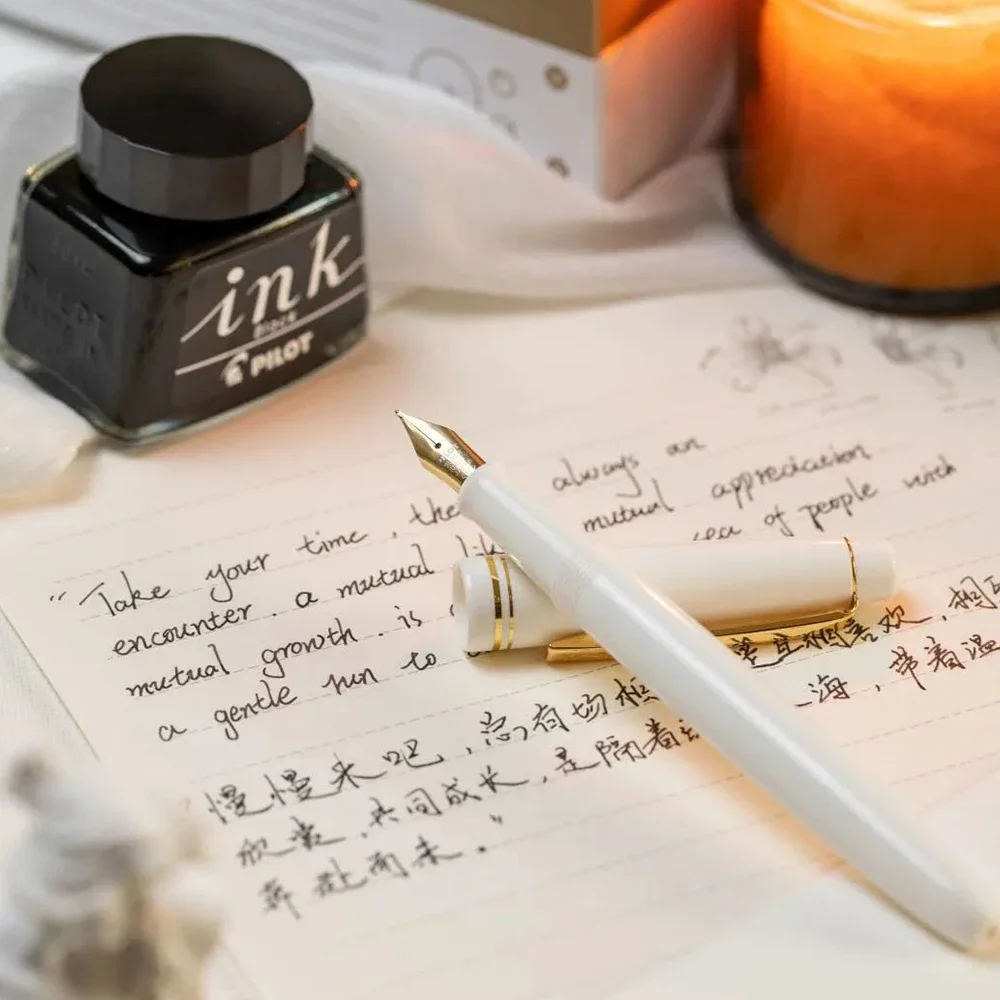 ink
Black
PILOT
"Take your time, the always an
encounter. a mutual mutual appreciation
mutual growth. is sea of people with
a gentle run to
慢慢来吧，总有场相 并且相喜欢，相
欣赏，共同成长，是隔着 海，带着温
奔赴而来。"